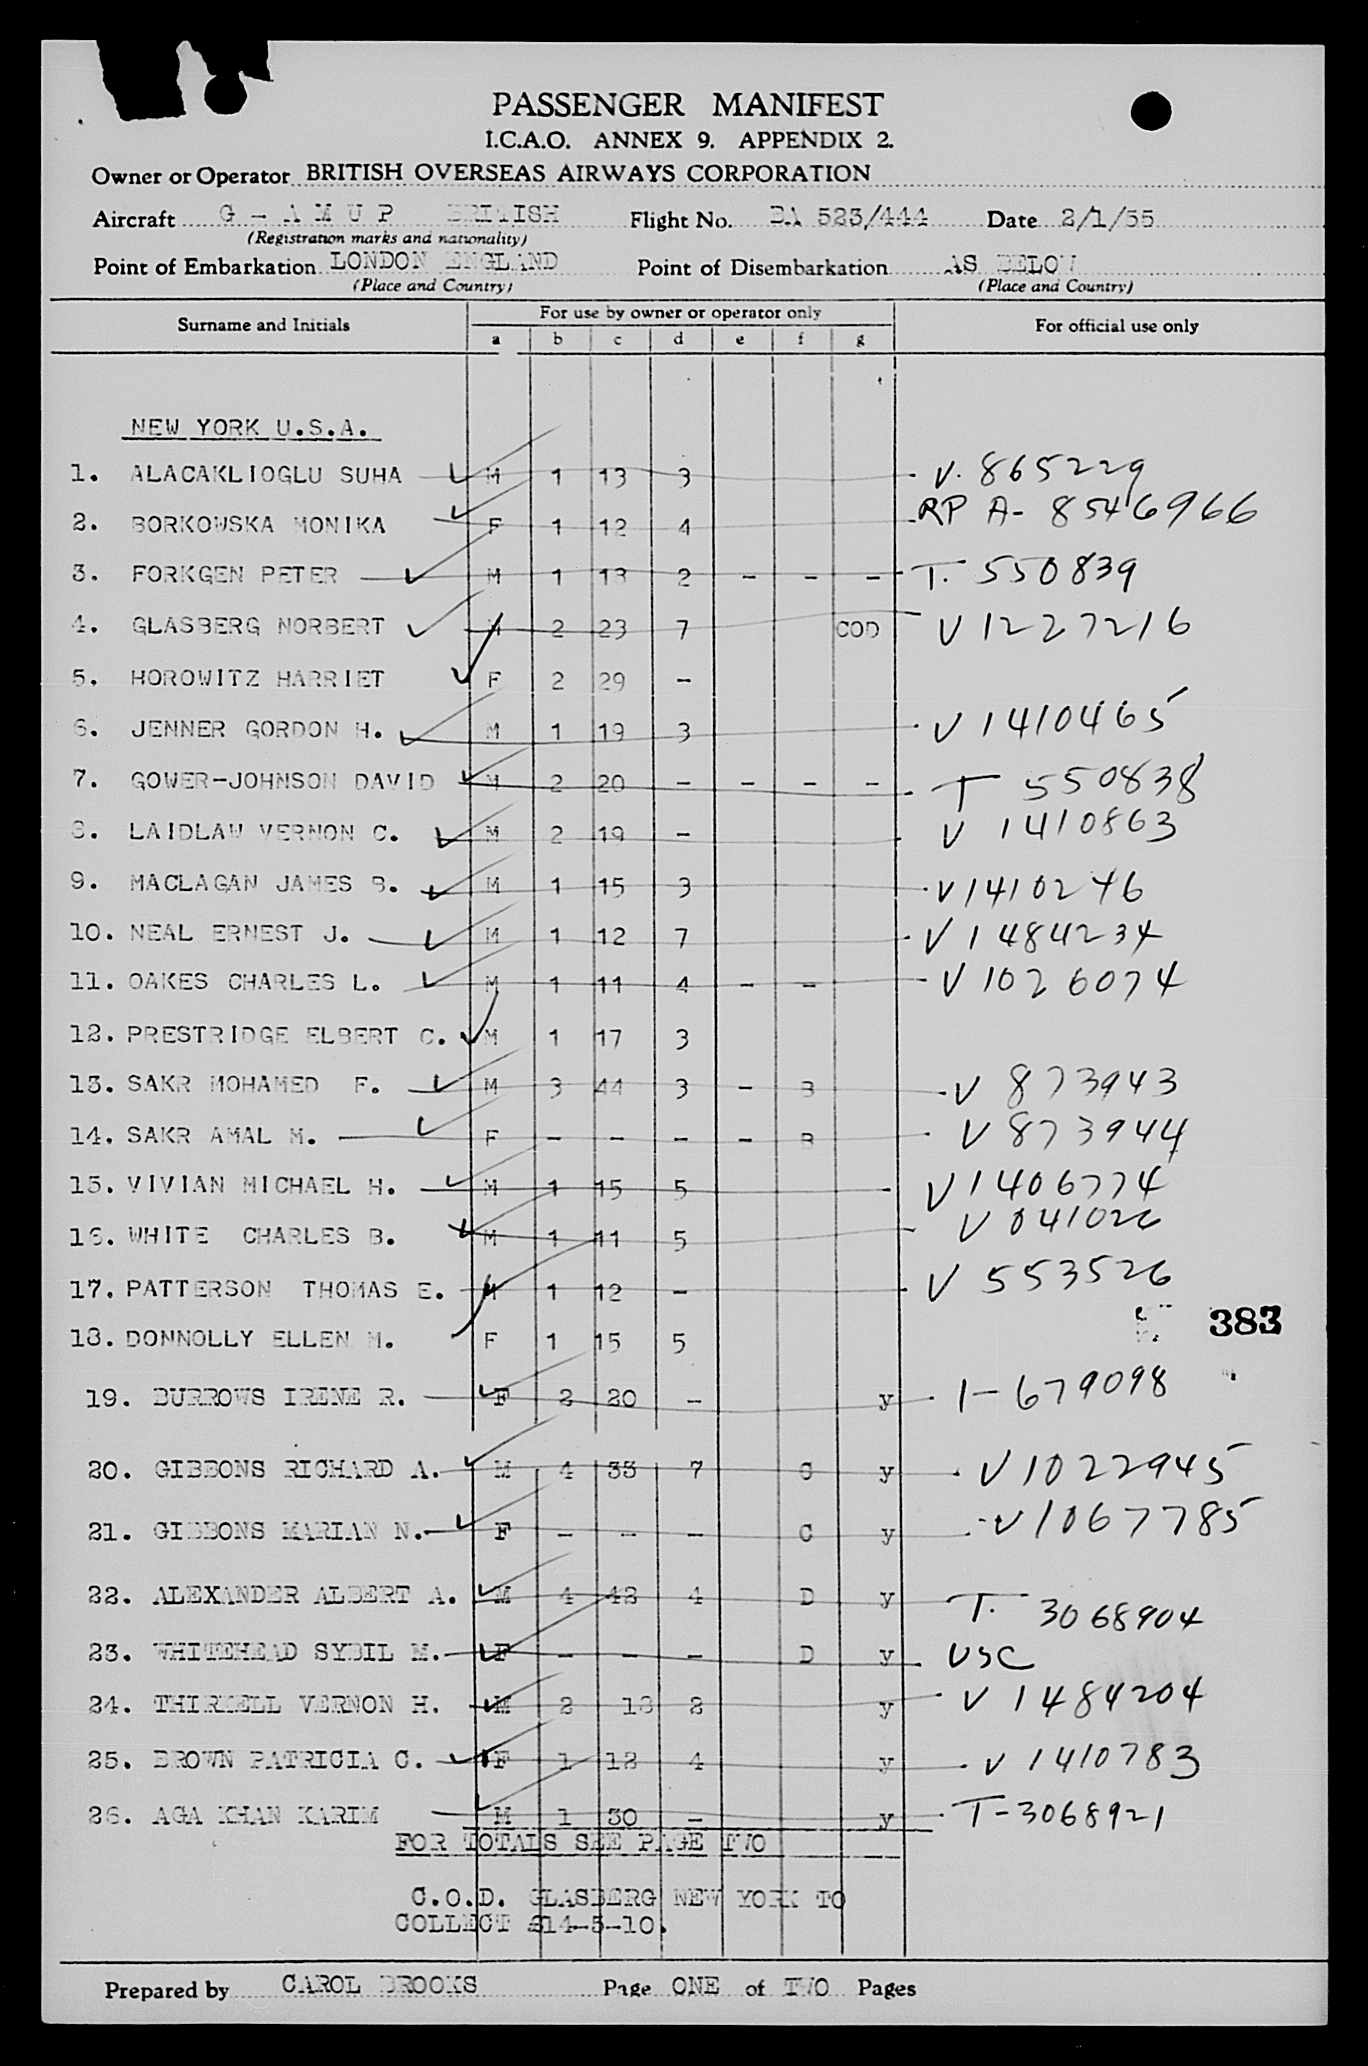 PASSENGER MANIFEST
I.C.A.O. ANNEX 9. APPENDIX 2.
Owner or Operator BRITISH OVERSEAS AIRWAYS CORPORATION
Aircraft G - A M U P BRITISH Flight No. BA 523/444 Date 2/1/55
(Registration marks and nationality)
Point of Embarkation LONDON ENGLAND Point of Disembarkation AS BELOW
(Place and Country) (Place and Country)
Surname and Initials For use by owner or operator only For official use only
a b c d e f g
NEW YORK U.S.A.
1. ALACAKLIOGLU SUHA M 1 13 3 V. 865229
2. BORKOWSKA MONIKA F 1 12 4 RP A- 8546966
3. FORKGEN PETER M 1 13 2 - - - T. 550839
4. GLASBERG NORBERT M 2 23 7 COD V 1227216
5. HOROWITZ HARRIET F 2 29 -
6. JENNER GORDON H. M 1 19 3 V 1410465
7. GOWER-JOHNSON DAVID M 2 20 - - - - T 550838
8. LAIDLAW VERNON C. M 2 19 - V 1410863
9. MACLAGAN JAMES B. M 1 15 3 V1410246
10. NEAL ERNEST J. M 1 12 7 V 1484234
11. OAKES CHARLES L. M 1 11 4 - - V 1026074
12. PRESTRIDGE ELBERT C. M 1 17 3
13. SAKR MOHAMED F. M 3 44 3 - B V 873943
14. SAKR AMAL M. F - - - - B V 873944
15. VIVIAN MICHAEL H. M 1 15 5 V 1406774
16. WHITE CHARLES B. M 1 11 5 V 041026
17. PATTERSON THOMAS E. M 1 12 - V 553526
383
18. DONNOLLY ELLEN M. F 1 15 5
19. BURROWS IRENE R. F 2 20 - y 1-679098
20. GIBBONS RICHARD A. M 4 33 7 C y V1022945
21. GIBBONS MARIAN N. F - - - C y V1067785
22. ALEXANDER ALBERT A. M 4 42 4 D y T. 3068904
23. WHITEHEAD SYBIL M. F - - - D y USC
24. THIRKELL VERNON H. M 2 18 2 y V 1484204
25. BROWN PATRICIA C. F 1 12 4 y V 1410783
26. AGA KHAN KARIM M 1 30 - y T-3068921
FOR TOTALS SEE PAGE TWO
C.O.D. GLASBERG NEW YORK TO
COLLECT £14-5-10.
Prepared by CAROL BROOKS Page ONE of TWO Pages